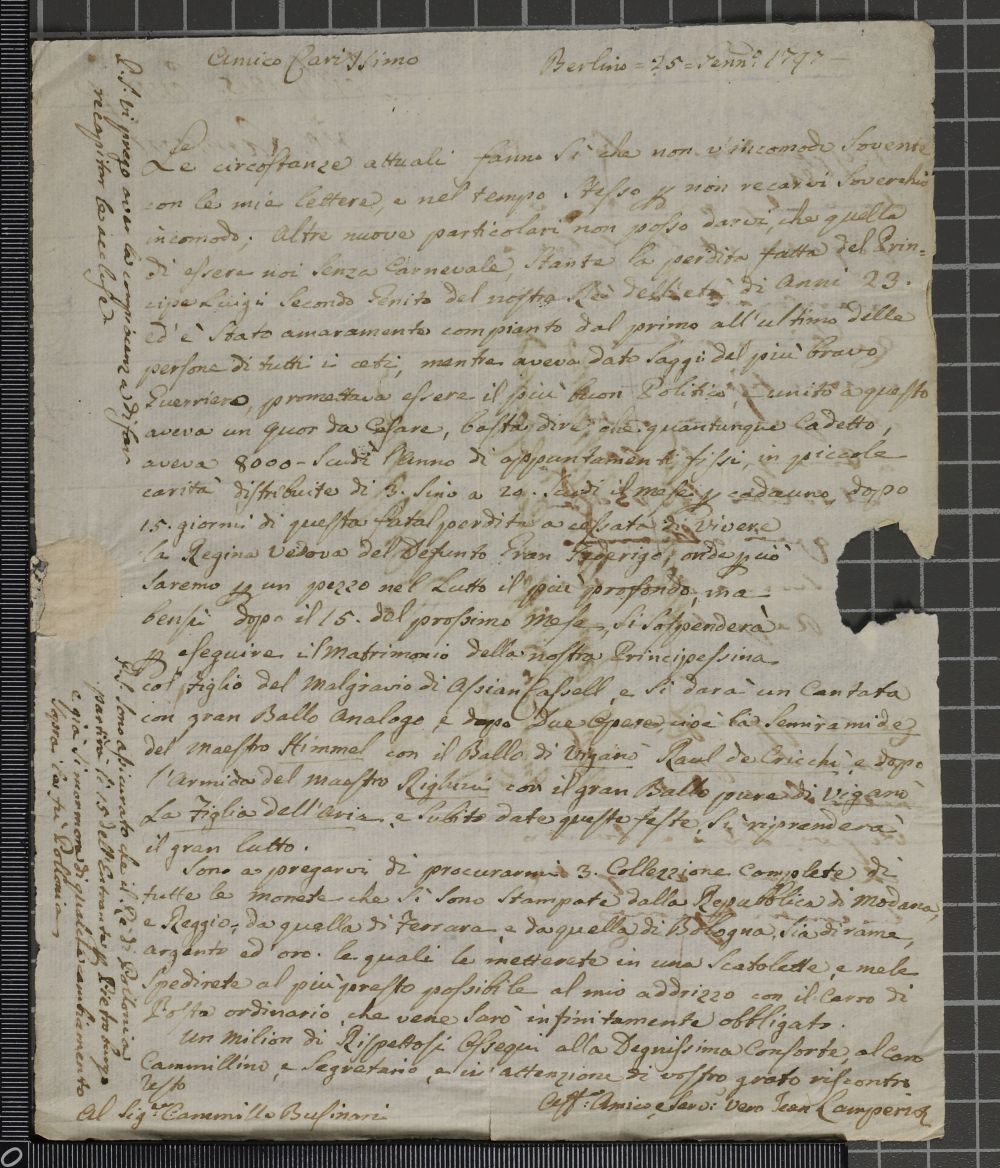 Amico Carissimo Berlino = 25 = Jenn.: 1797 –
Le circostanze attuali fanno si che non v'incomodi Sovente
con le mie lettere, e nel tempo Stesso p non recarvi Soverchio
incomodo; Altre nuove particolari non posso darvi, che quella
di essere noi Senza Carnevale, Stante la perdita fatta del Prin-
cipe Luigi Secondo Genito del nostro Rè dell'età di Anni 23.
ed è Stato amaramente compianto dal primo all'ultimo delle
persone di tutti i ceti, mentre aveva dato Saggi del più bravo
Guerriero, prometteva essere il più buon Politico, e unito a questo
aveva un quor da Cesare, basta dire che quantunque Cadetto,
aveva 8000 – Scudi l'Anno di appuntamenti fissi, in piccole
carità distribuite di 3. Sino a 20. Scudi il mese p cadauno, dopo
15. giorni di questa fatal perdita a cessata di Vivere
la Regina Vedova del Defunto Gran Federigo, onde p ciò
Saremo p un pezzo nel Lutto il più profondo, ma
bensì dopo il 15. del prossimo Mese, Si Sospenderà
p eseguire il Matrimonio della nostra Principessina
col figlio del Malgravio di Assian Cassell e Si darà un Cantata
con gran Ballo Analogo e dopo Due Opere cioè la Semiramide
del Maestro Himmel con il Ballo di Viganò Raul de Cricchi, e dopo
l'Armida del Maestro Righini con il gran Ballo pure di Viganò
La Figlia dell'Aria, e Subito date queste feste, Si riprenderà
il gran Lutto.
Sono a pregarvi di procurarmi 3. Collezzione Complete di
tutte le monete che Si Sono Stampate dalla Repubblica di Modana,
e Reggio, da quella di Ferrara, e da quella di Bologna, Sia di rame,
argento ed oro. le quali le metterete in una Scatolette, e mele
Spedirete al più presto possibile al mio addrizzo con il Carro di
Posta ordinario, che vene Sarò infinitamente obbligato.
Un Milion di Rispettosi Ossequi alla Degnissima Consorte, al Caro
Cammillino, e Segretario, e in attenzione di vostro grato riscontro
resto
Al Sig.re Cammillo Businari Aff.o Amico, e Serv.: vero Jean Lamperi
P.S. Vi prego aver la compiacenza di far
recapitar le acchlse
P.S. Sono assicurato che il Rè di Polonia
partirà li 15. dell'Entrante p Pietroburgo
e già Si mormora di qualche cambiamento
Sopra la fu Pollonia –